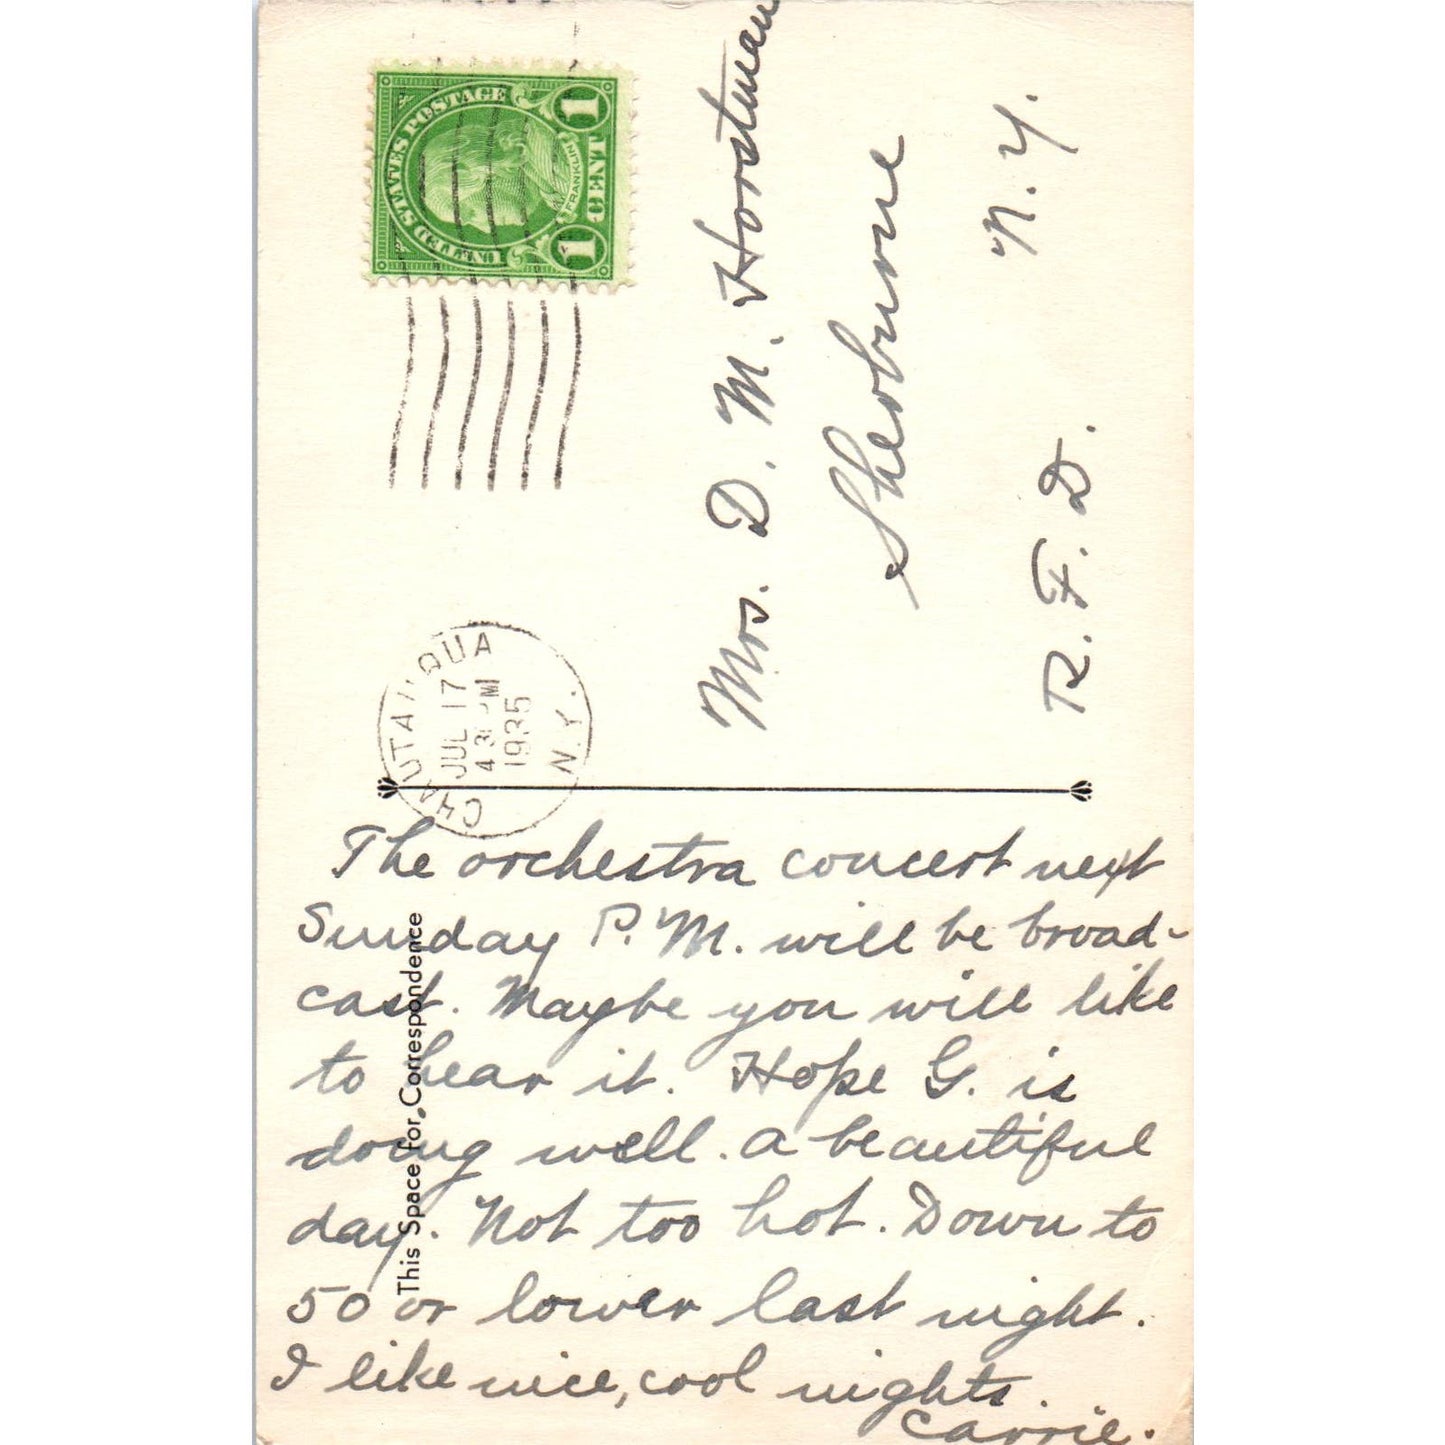 UNITED STATES POSTAGE
FRANKLIN
1 CENT 1
CHAUTAUQUA
JUL 17
430 PM
1935
N.Y.
Mrs. D. M. Horstman
Sherburne
N. Y.
R. F. D.
This Space for Correspondence
The orchestra concert next
Sunday P. M. will be broad-
cast. Maybe you will like
to hear it. Hope G. is
doing well. A beautiful
day. Not too hot. Down to
50 or lower last night.
I like nice, cool nights.
Carrie.